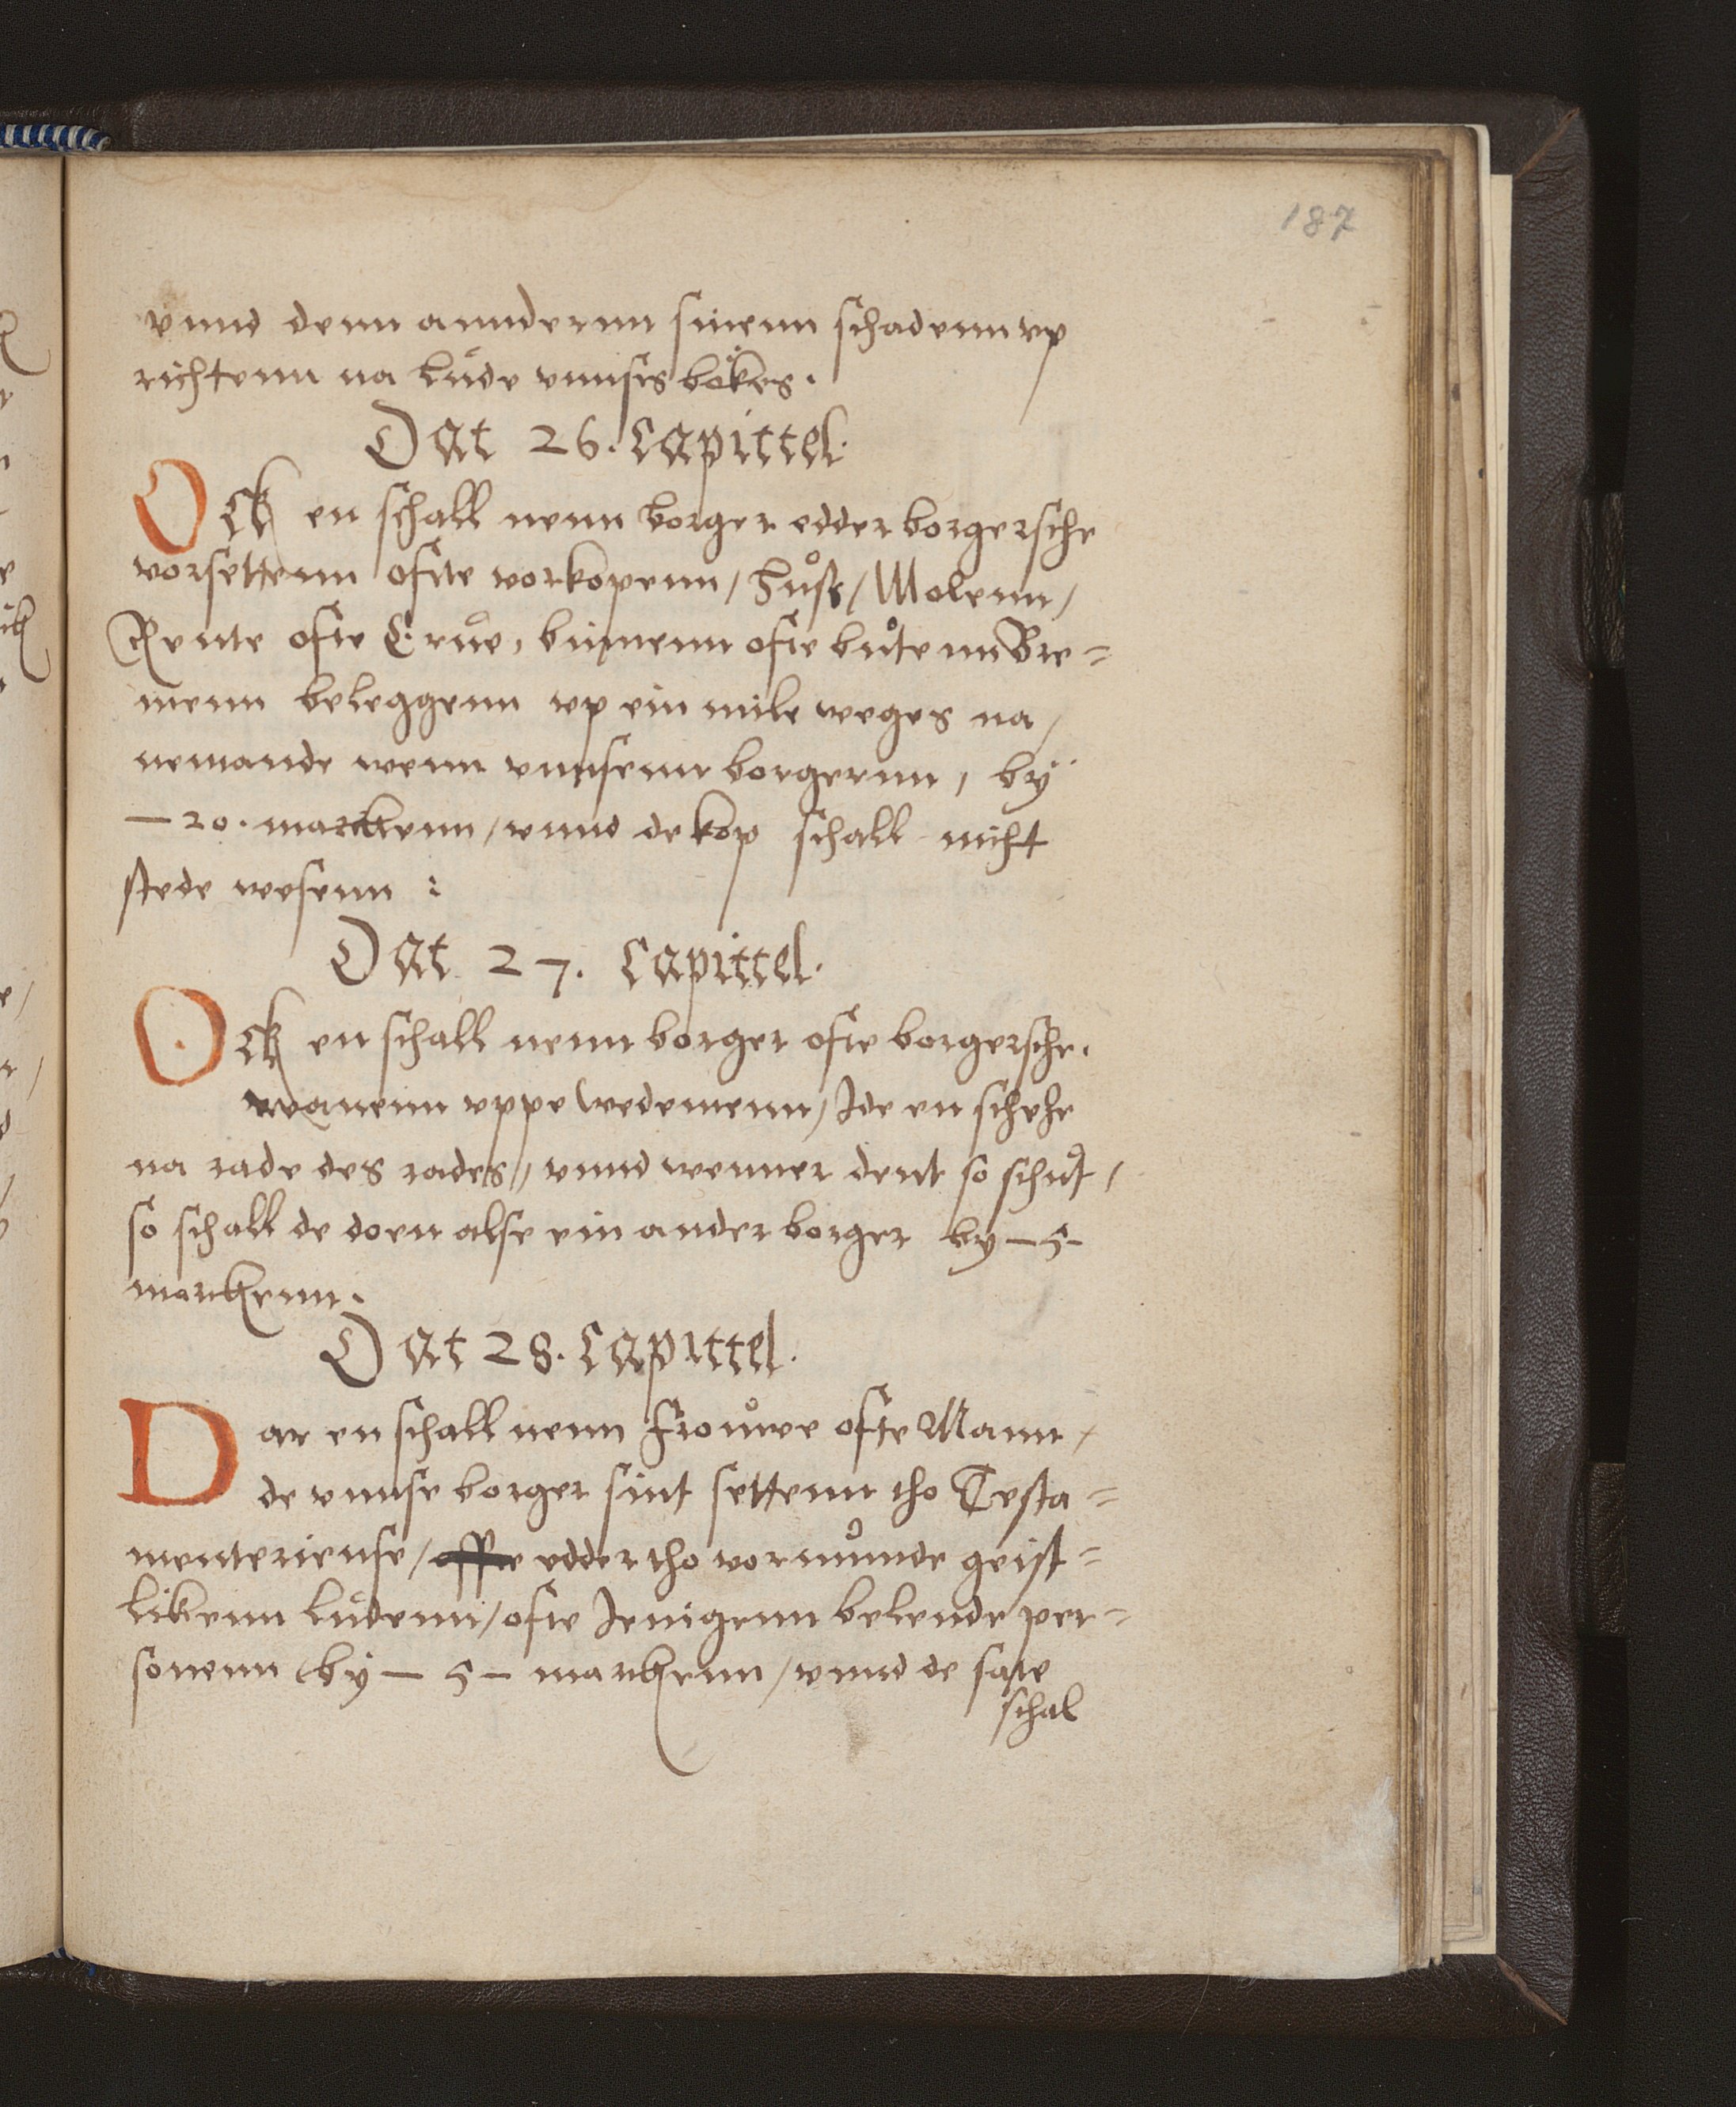 187
vnnd denn anndernn sinenn schadenn vp
richtenn na lude vnnses bökes.
Dat 26. Capittel.
Ock en schall nenn borger edder borgersche
vorsettenn ofte vorkopenn / Huß / Molenn /
Rente ofte Erue, binnenn ofte butenn Bre=
menn beleggenn vp ein mile weges na /
nemande wenn vnnsenn borgernn, by
— 20. marckenn / vnnd de kop schall nicht
stede wesenn :
Dat 27. Capittel.
Ock en schall nenn borger ofte borgersche.
wanenn vppe Wedemenn / Ide en schehe
na rade des rades, vnnd wenner dent so schut /
so schall de doen alse ein ander borger by — 5 —
marckenn.
Dat 28. Capittel.
Dar en schall nenn frouwe ofte Mann /
de vnnse borger sint settenn tho Testa=
menteriense / offte edder tho vormunde geist=
likenn ludenn / ofte Jenigenn belende per=
sonenn by — 5 — marckenn / vnnd de sate
schal